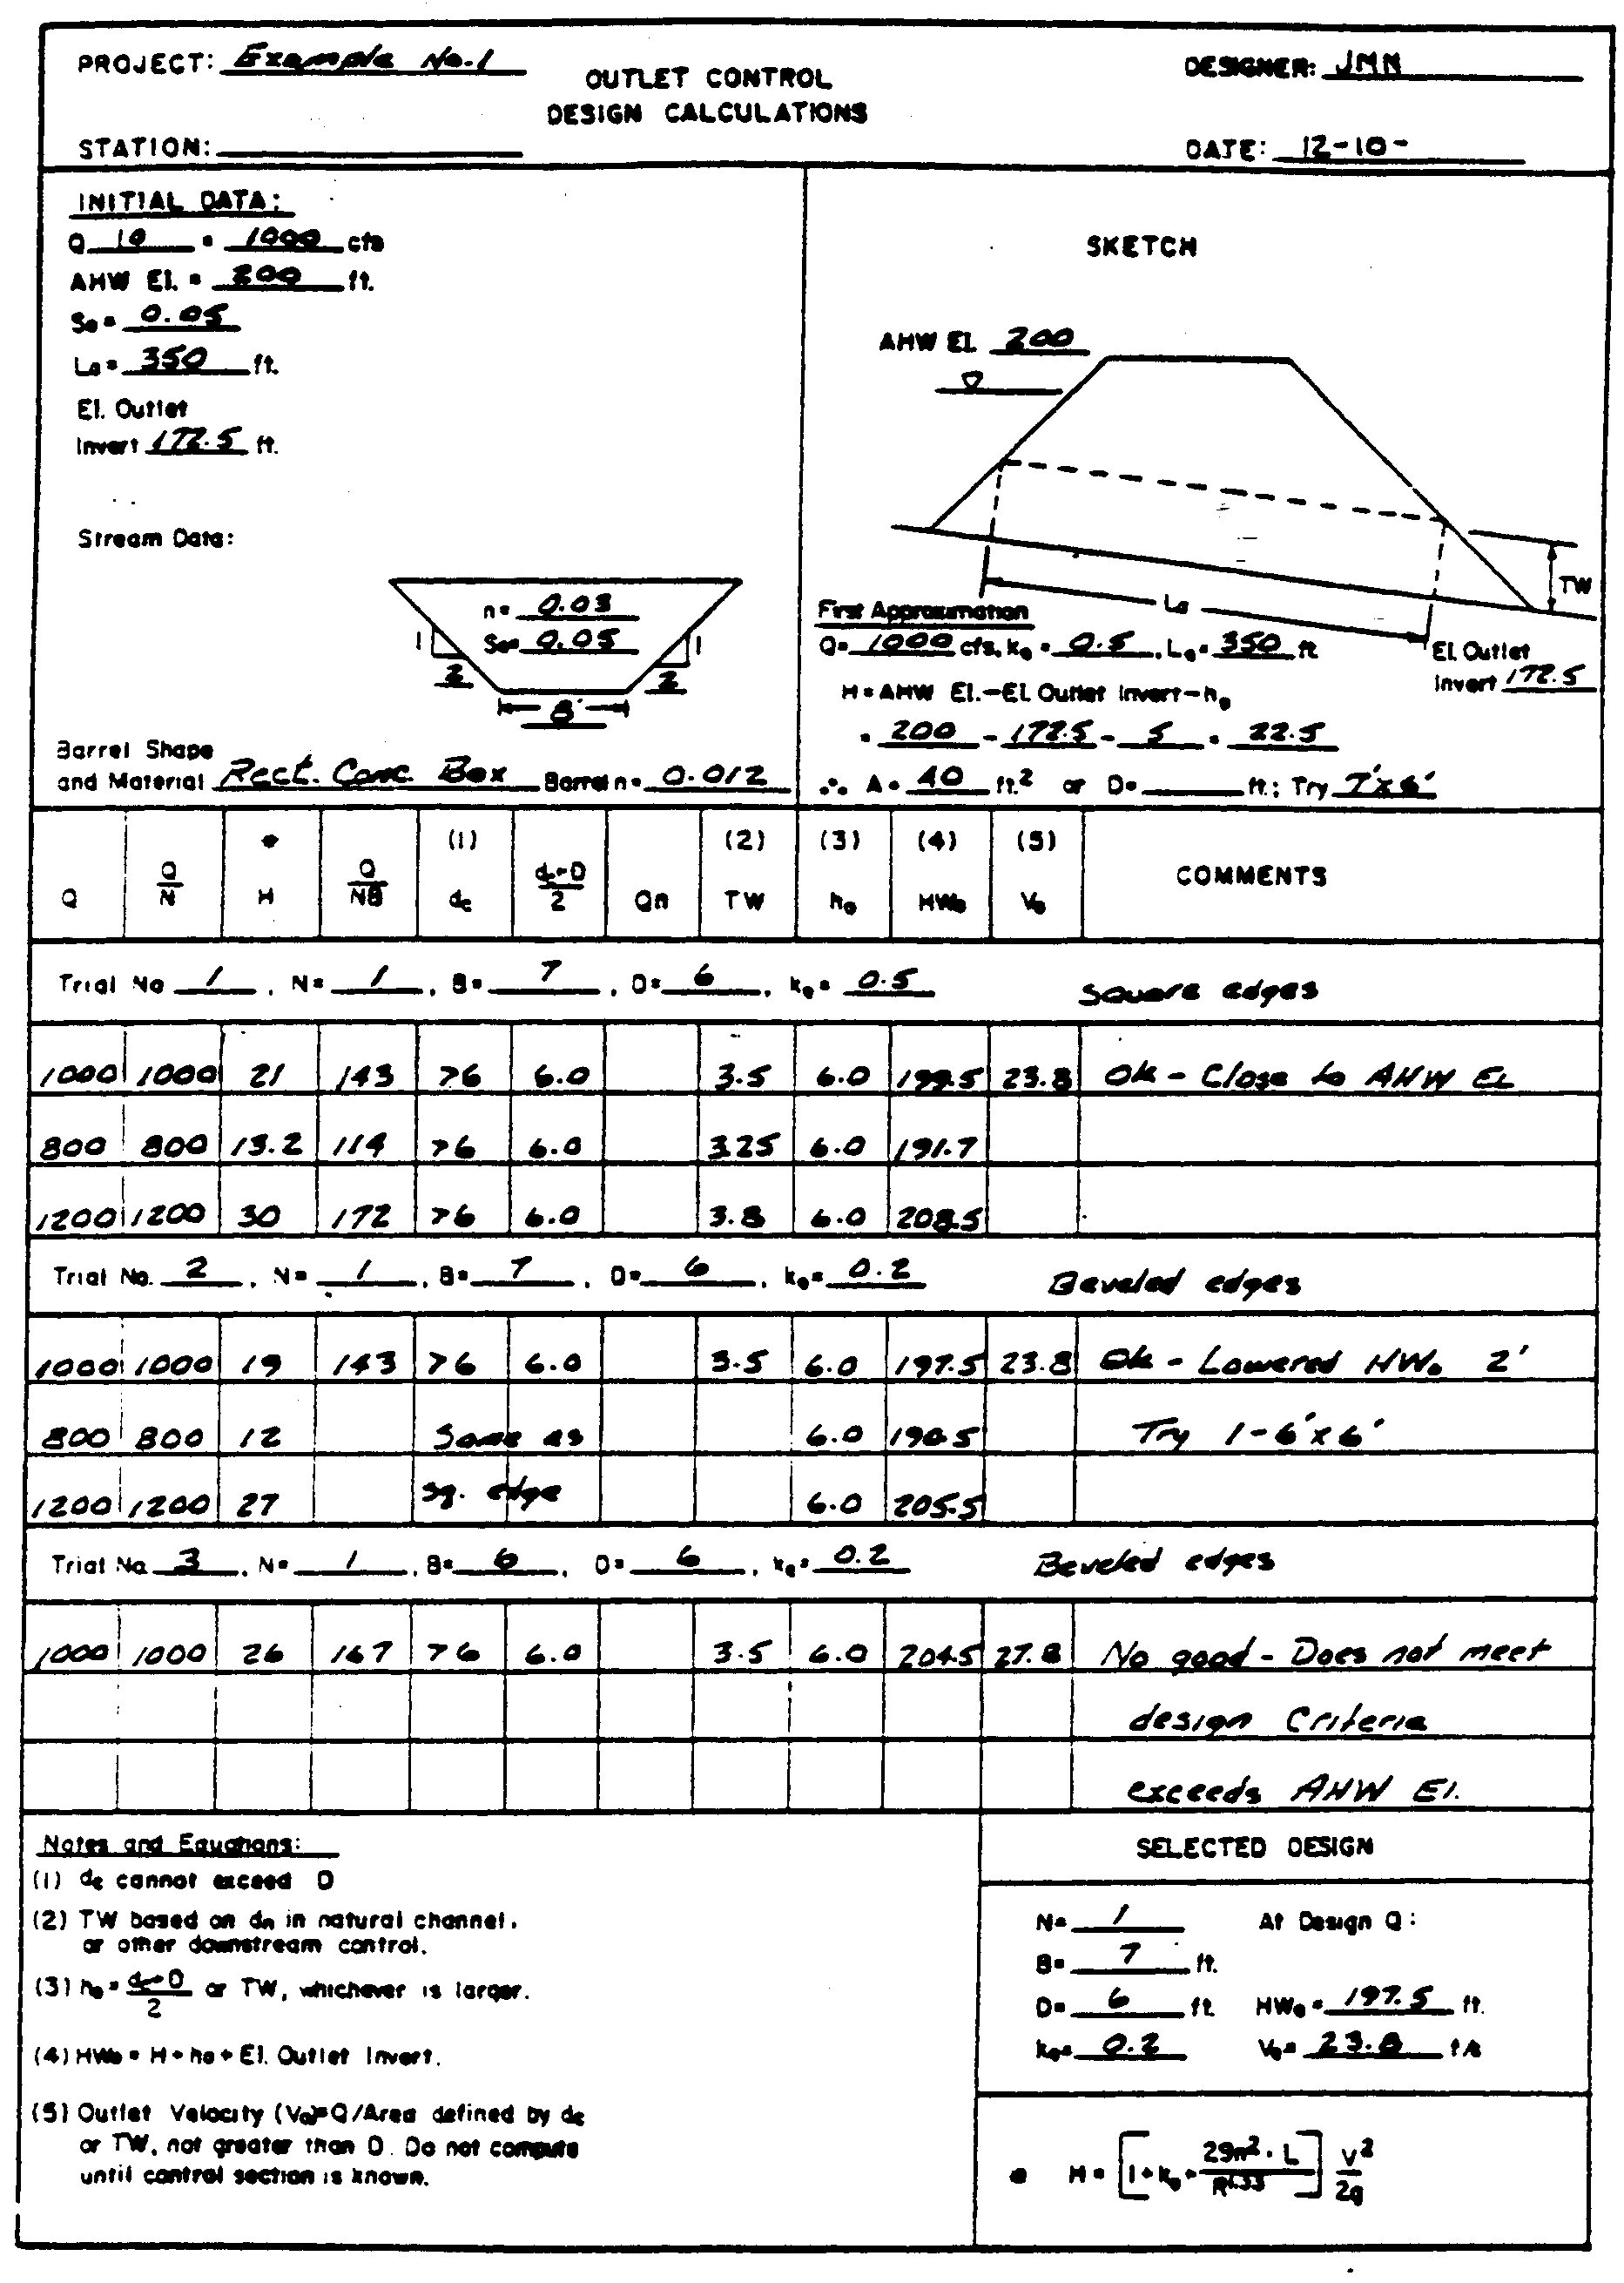 PROJECT: Example No. 1
OUTLET CONTROL
DESIGN CALCULATIONS
DESIGNER: JMN
STATION:
DATE: 12-10-
INITIAL DATA:
Q 10 = 1000 cfs
AHW El. = 200 ft.
So = 0.05
La = 350 ft.
El. Outlet
Invert 172.5 ft.
Stream Data:
n = 0.03
So = 0.05
1 1
2 2
8'
Barrel Shape
and Material Rect. Conc. Box Barrel n = 0.012
SKETCH
AHW El. 200
TW
La
El. Outlet
Invert 172.5
First Approximation
Q = 1000 cfs, ke = 0.5, La = 350 ft
H = AHW El. - El. Outlet Invert - ho
= 200 - 172.5 - 5 = 22.5
∴ A = 40 ft.² or D = ft.; Try 7'x6'
* (1) (2) (3) (4) (5)
Q Q/N H Q/NB dc dc+D/2 Qn TW ho HWo Vo COMMENTS
Trial No 1, N = 1, B = 7, D = 6, ke = 0.5 Square edges
1000 1000 21 143 >6 6.0 3.5 6.0 199.5 23.8 Ok - Close to AHW EL
800 800 13.2 114 >6 6.0 3.25 6.0 191.7
1200 1200 30 172 >6 6.0 3.8 6.0 208.5
Trial No. 2, N = 1, B = 7, D = 6, ke = 0.2 Beveled edges
1000 1000 19 143 >6 6.0 3.5 6.0 197.5 23.8 Ok - Lowered HWo 2'
800 800 12 Same as 6.0 190.5 Try 1-6'x6'
1200 1200 27 sq. edge 6.0 205.5
Trial No. 3, N = 1, B = 6, D = 6, ke = 0.2 Beveled edges
1000 1000 26 167 >6 6.0 3.5 6.0 204.5 27.8 No good - Does not meet
design Criteria
exceeds AHW El.
Notes and Equations:
(1) dc cannot exceed D
(2) TW based on dn in natural channel,
or other downstream control.
(3) ho = dc+D/2 or TW, whichever is larger.
(4) HWo = H + ho + El. Outlet Invert.
(5) Outlet Velocity (Vo) = Q/Area defined by dc
or TW, not greater than D. Do not compute
until control section is known.
SELECTED DESIGN
N = 1 At Design Q:
B = 7 ft.
D = 6 ft. HWo = 197.5 ft.
ke = 0.2 Vo = 23.8 f/s
* H = [1 + ke + 29n² · L / R^1.33] V²/2g